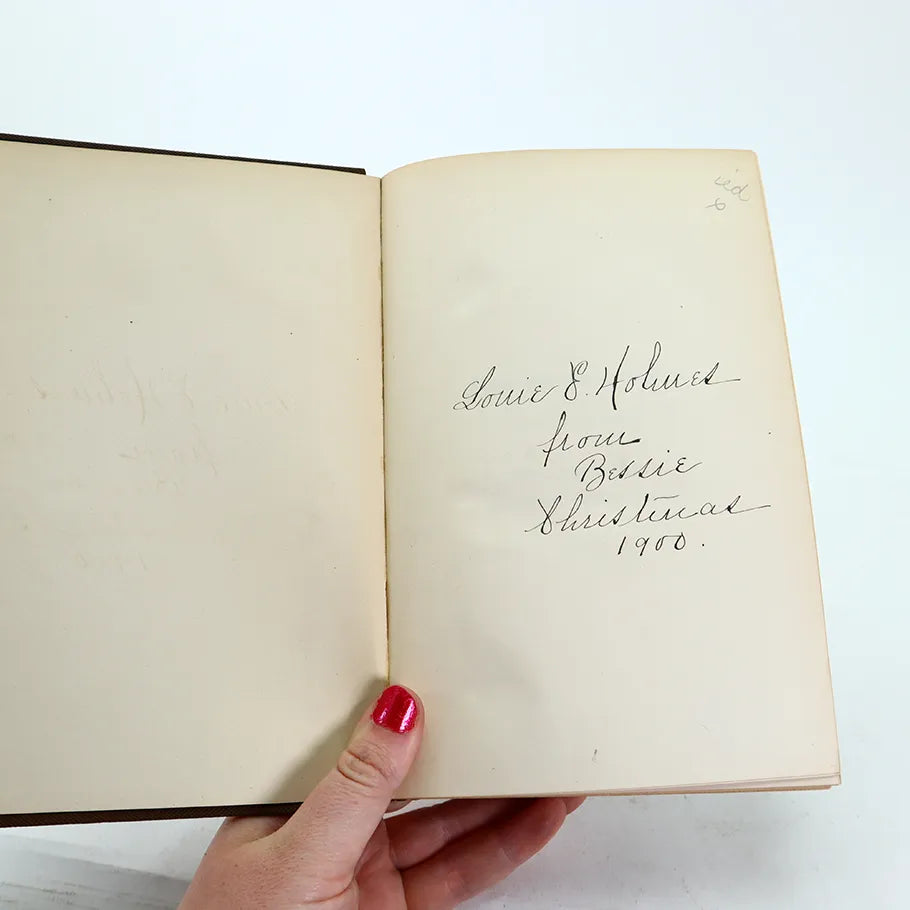 Louie E. Holmes
from
Bessie
Christmas
1900.